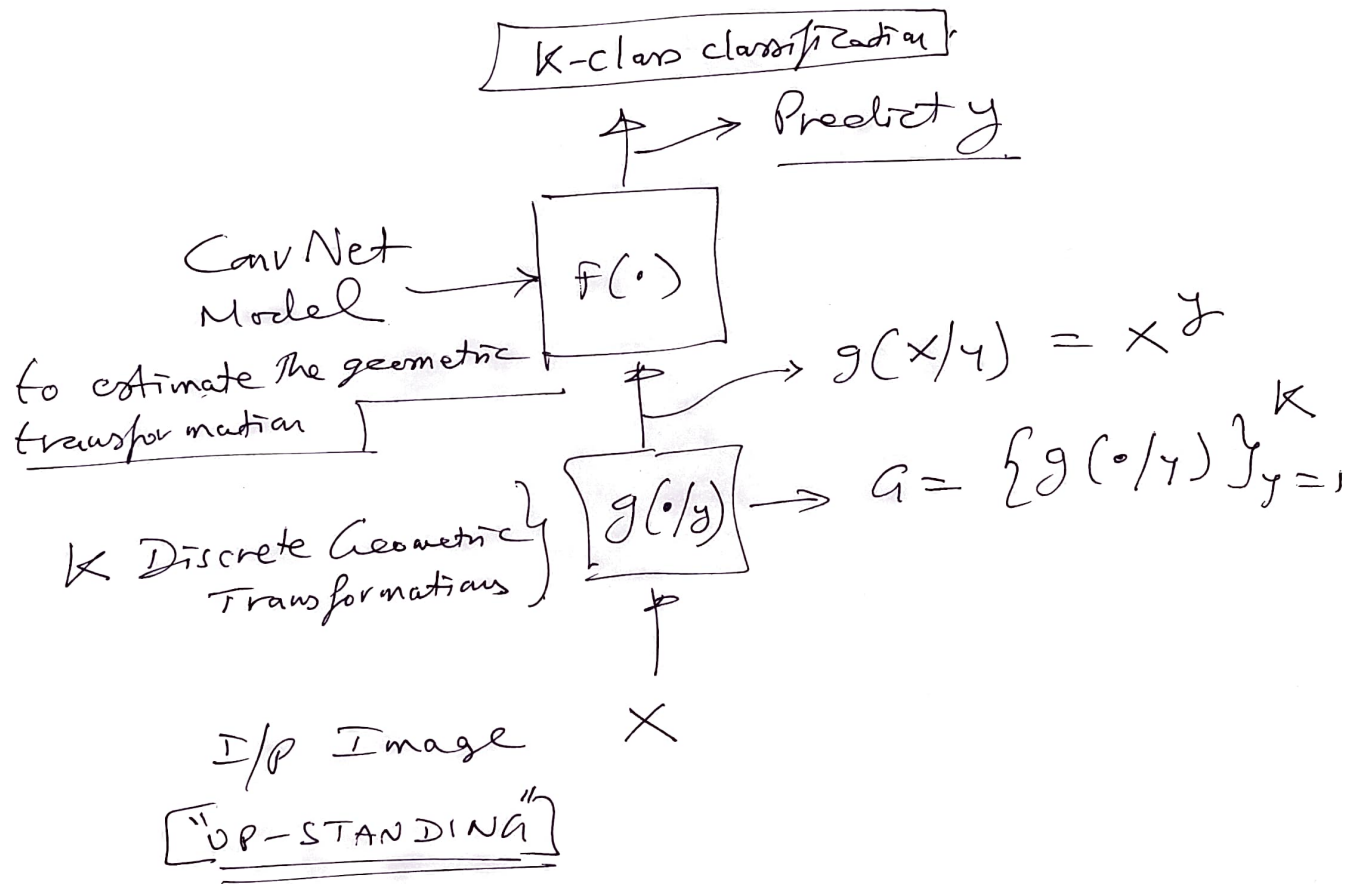 K-class classification
Predict y
ConvNet
Model
F(·)
to estimate the geometric
transformation
g(X/y) = X^y
G = {g(·/y)}_{y=1}^K
g(·/y)
K Discrete Geometric
Transformations
X
I/P Image
"UP-STANDING"